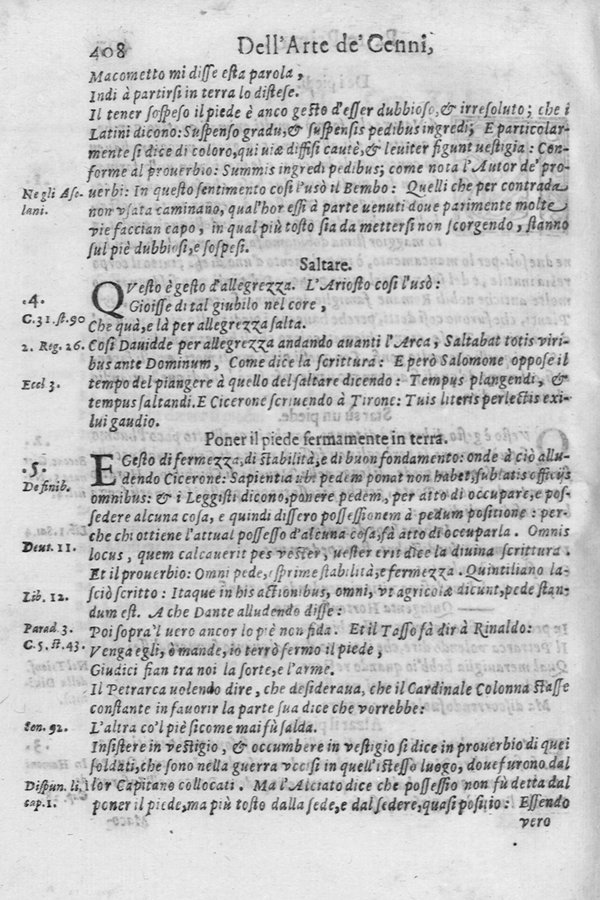 408 Dell'Arte de' Cenni,
Macometto mi disse esta parola,
Indi à partirsi in terra lo distese.
Il tener sospeso il piede è anco gesto d'esser dubbioso,& irresoluto; che i
Latini dicono: Suspenso gradu,& suspensis pedibus ingredi; E particolar-
mente si dice di coloro,qui uiæ diffisi cautè,& leuiter figunt vestigia: Con-
forme al prouerbio: Summis ingredi pedibus; come nota l'Autor de' pro-
Negli Aso- uerbi: In questo sentimento così l'usò il Bembo: Quelli che per contrada
lani. non vsata caminano, qual'hor essi à parte venuti doue parimente molte
vie faccian capo, in qual più tosto sia da mettersi non scorgendo, stanno
sul piè dubbiosi,e sospesi.
Saltare.
.4. QVesto è gesto d'allegrezza. L'Ariosto così l'usò:
Gioisse di tal giubilo nel core,
C.31.st.90 Che quà,e là per allegrezza salta.
2. Reg. 26. Così Dauidde per allegrezza andando auanti l'Arca, Saltabat totis viri-
bus ante Dominum, Come dice la scrittura: E però Salomone oppose il
Eccl 3. tempo del piangere à quello del saltare dicendo: Tempus plangendi, &
tempus saltandi. E Cicerone scriuendo à Tirone: Tuis literis perlectis exi-
lui gaudio.
Poner il piede fermamente in terra.
.5. E Gesto di fermezza,di stabilità,e di buon fondamento: onde à ciò allu-
De finib. dendo Cicerone: Sapientia ubi pedem ponat non habet,sublatis officijs
omnibus: & i Leggisti dicono,ponere pedem, per atto di occupare,e pos-
sedere alcuna cosa, e quindi dissero possessionem à pedum positione: per-
che chi ottiene l'attual possesso d'alcuna cosa,fà atto di occuparla. Omnis
Deut. 11. locus, quem calcauerit pes vester, uester erit dice la diuina scrittura.
Et il prouerbio: Omni pede,esprime stabilità,e fermezza. Quintiliano la-
Lib. 12. sciò scritto: Itaque in his actionibus, omni, vt agricolæ dicunt,pede stan-
dum est. A che Dante alludendo disse:
Parad. 3. Poi sopra'l uero ancor lo piè non fida. Et il Tasso fà dir à Rinaldo:
C.5. st.43. Venga egli, ò mande, io terrò fermo il piede,
Giudici fian tra noi la sorte,e l'arme.
Il Petrarca uolendo dire, che desideraua, che il Cardinale Colonna stasse
constante in fauorir la parte sua dice che vorrebbe:
Son. 92. L'altra co'l piè sicome mai fù salda.
Insistere in vestigio, & occumbere in vestigio si dice in prouerbio di quei
soldati,che sono nella guerra vccisi in quell'istesso luogo, doue furono dal
Dispun. li, lor Capitano collocati. Ma l'Alciato dice che possessio non fù detta dal
cap.1. poner il piede,ma più tosto dalla sede,e dal sedere,quasi positio: Essendo
vero